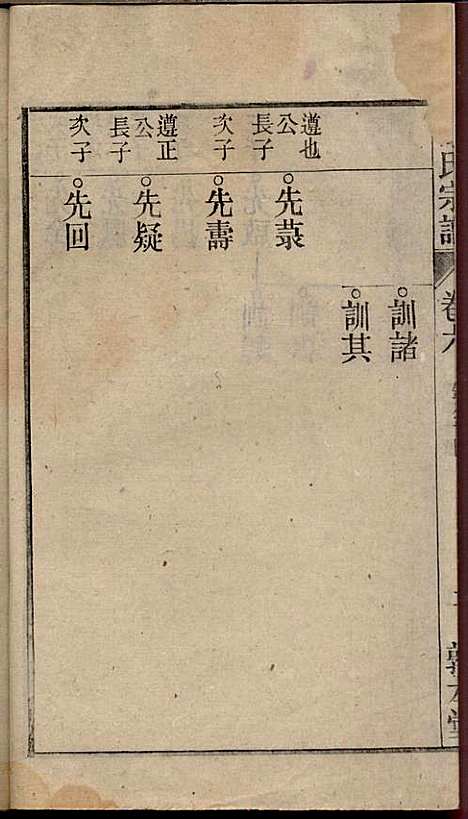 訓諸
訓其
遵也公長子
先菉
次子
先壽
遵正公長子
先疑
次子
先回
氏宗譜
卷六